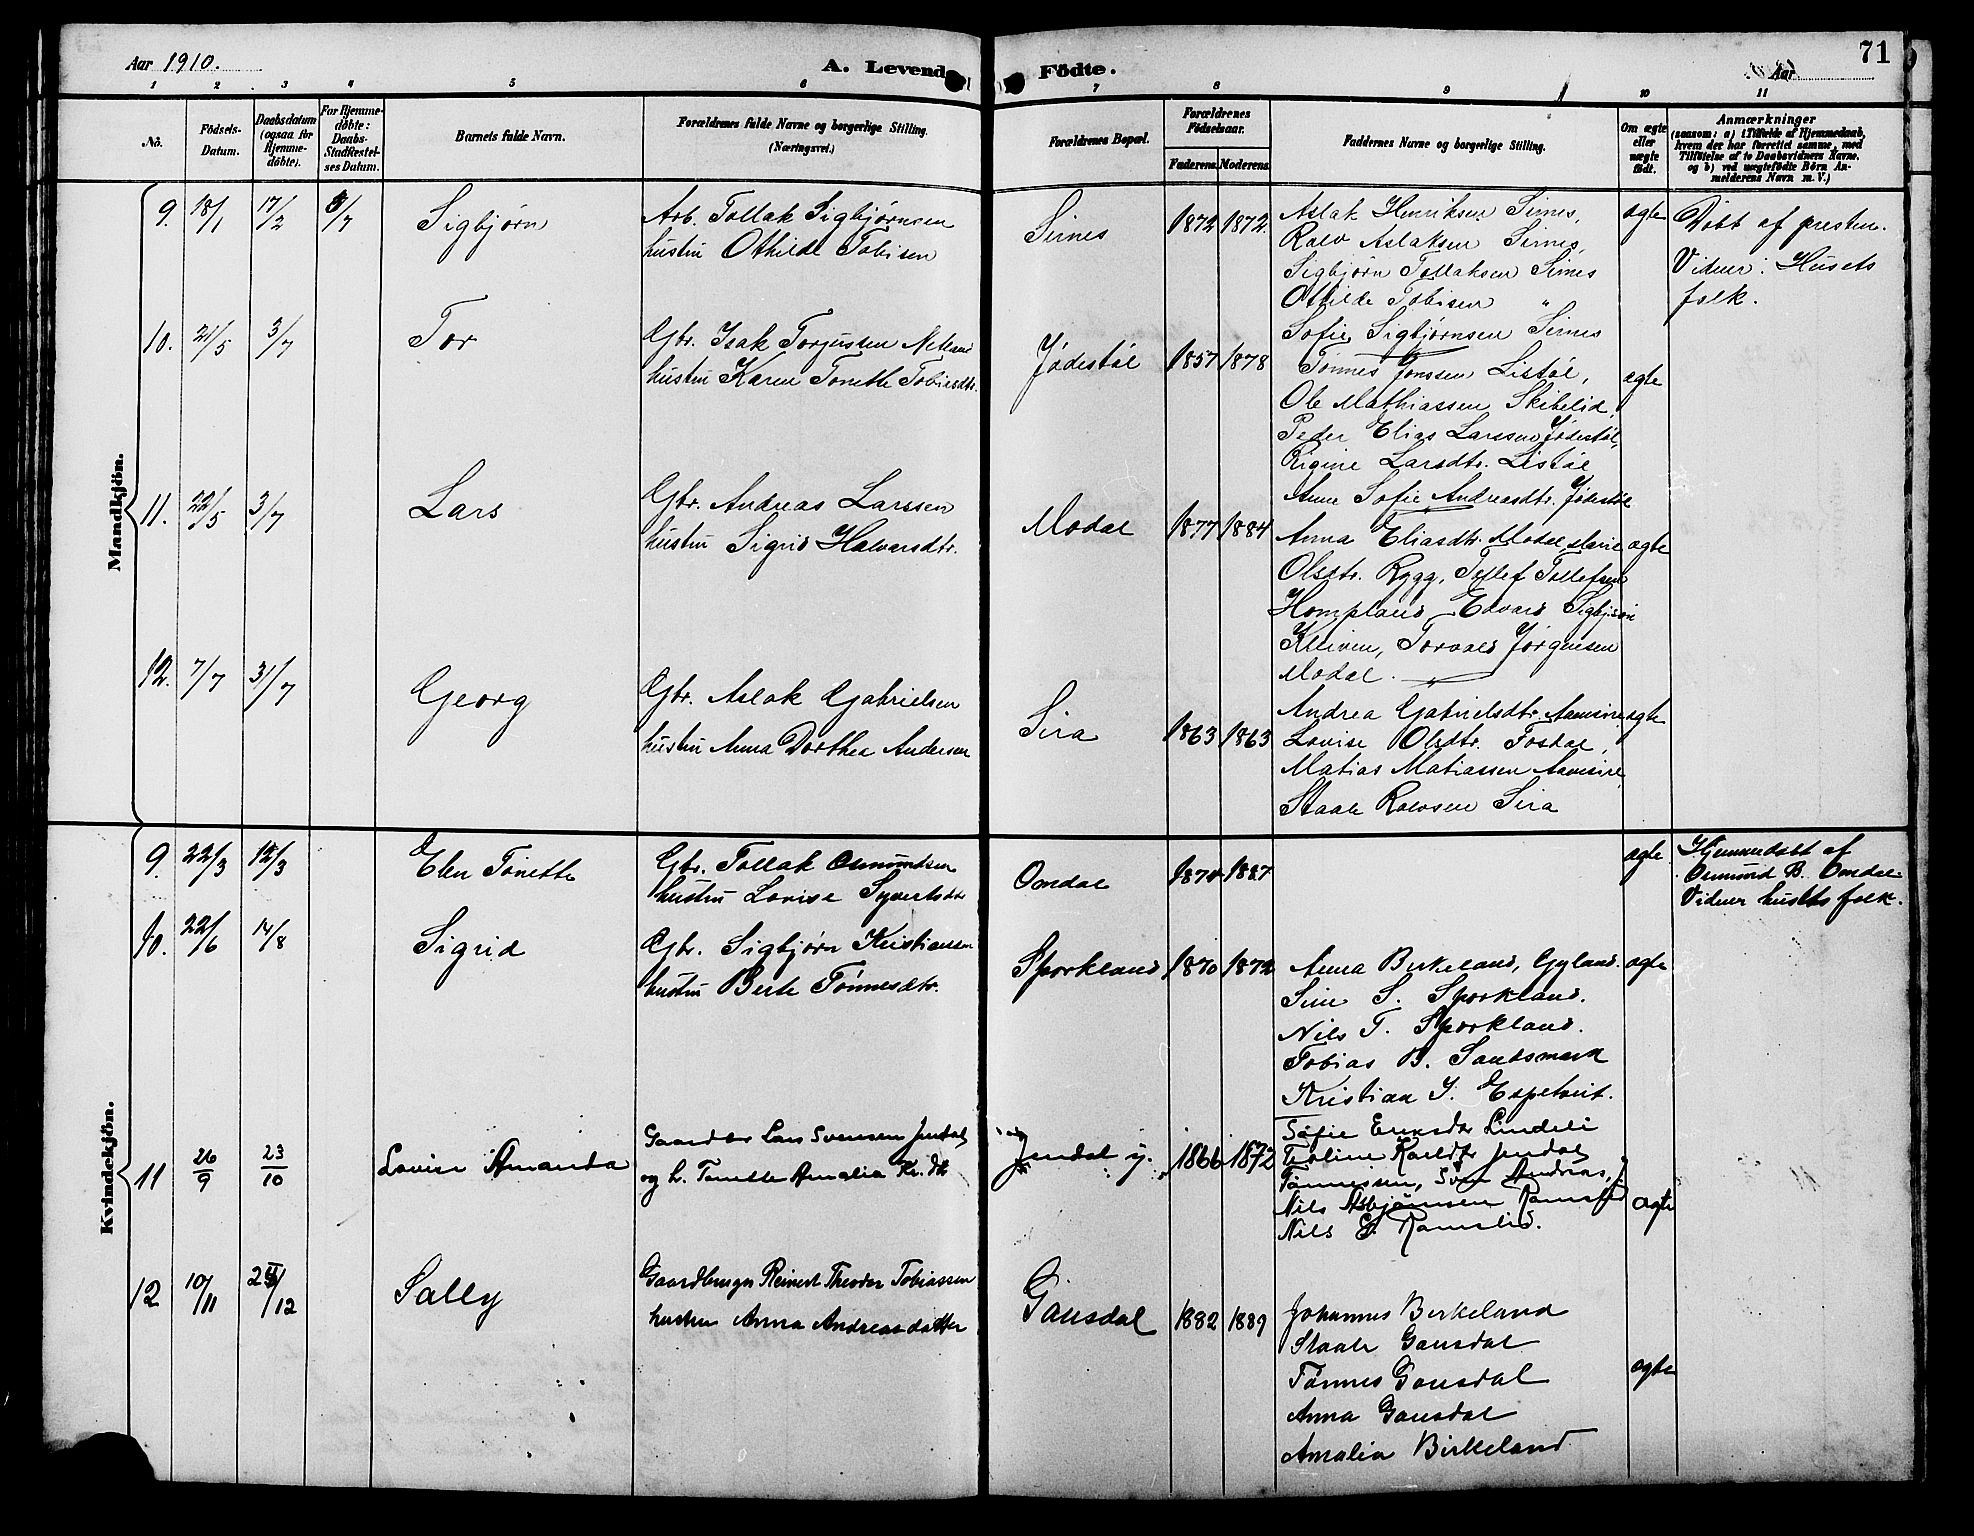 Aar 1910.
A. Levende Fødte.
Aar
71
1 2 3 4 5 6 7 8 9 10 11
No.
Födsels-Datum.
Daabsdatum (ogsaa for Hjemme-döbte).
For Hjemme-döbte: Daabs-Stadfæstel-ses Datum.
Barnets fulde Navn.
Forældrenes fulde Navne og borgerlige Stilling.
(Næringsvei.)
Forældrenes Bopæl.
Forældrenes Födselsaar.
Faderens. Moderens.
Faddernes Navne og borgerlige Stilling.
Om ægte eller uægte födt.
Anmærkninger
(saasom: a) i Tilfælde af Hjemmedaab,
hvem der har forrettet samme, med
Tilföielse af to Daabsvidners Navne.
og b) ved uægtefödte Börn An-
melderens Navn m. V.)
Mandkjön.
9. 18/1 17/2 3/7 Sigbjørn
Arb. Tollak Sigbjørnsen
hustru Othilde Tobisen
Sirnes 1872 1872.
Aslak Henriksen Sirnes,
Rolv Aslaksen Sirnes,
Sigbjørn Tollaksen Sirnes
Othilde Tobisen "
Sofie Sigbjørnsen Sirnes
ægte
Døbt af presten.
Vidner: Husets
folk.
10. 21/5 3/7 Tor
Gbr. Isak Torjussen
hustru Karen Tonette Tobiasdtr.
Jødestøl 1857 1878
Tønnes Jonssen Listøl,
Ole Mathiassen Skibelid,
Peder Elias Larssen Jødestøl,
Rigine Larsdtr. Listøl
Anne Sofie Andreasdtr. Jødestøl
ægte
11. 22/5 3/7 Lars
Gbr. Andreas Larssen
hustru Sigrid Halvorsdtr.
Modal 1877 1884
Anna Eliasdtr. Modal, Marie
Olsdtr. Rygg, Tollef Tollefsen
Hompland, Edvard Sigbjørn
Kleiven, Torvald Jørgensen
Modal.
ægte
12. 7/7 31/7 Georg
Gbr. Aslak Gabrielsen
hustru Anna Dorthea Andersen
Sira 1863 1863
Andrea Gabrielsdtr. Aamsire
Lovise Olsdtr. Fosdal,
Matias Matiassen Aamsire,
Staale Rolvsen Sira
ægte
Kvindekjön.
9. 22/3 12/3 Elen Tonette
Gbr. Tollak Osmundsen
hustru Lovise Syvertsdtr
Omdal 1870 1887
ægte
Hjemmedøbt af
Osmund B. Omdal
Vidner husets folk.
10. 22/6 14/8 Sigrid
Gbr. Sigbjørn Kristiansen
hustru Berte Tønnesdtr.
Sporkland 1870 1872
Anna Birkeland, Gyland.
Sine S. Sporkland.
Nils T. Sporkland.
Tobias B. Sandsmark
Kristian J. Espetveit.
ægte
11 26/9 23/10 Lovise Amanda
Gaardbr Lars Svensen Jendal
og h. Tonette Amalia Kr. dtr
Jendal y. 1866 1872
Sofie Eriksdtr Lindeli
Teoline Karldtr Jendal
Tønnessen, Sven Andreas, J
Nils Asbjørnsen
Nils E. Ramslid.
ægte
12 10/11 /12 Sally
Gaardbruger Reinert Theodor Tobiassen
hustru Anna Andreasdatter
Gausdal 1882 1889
Johannes Birkeland
Staale Gausdal
Tønnes Gausdal
Anna Gausdal
Amalia Birkeland
ægte